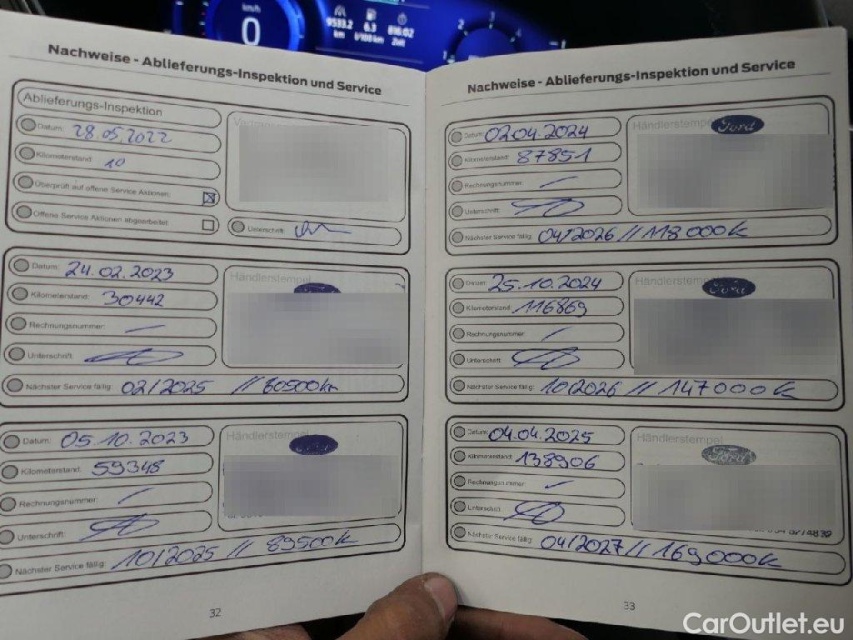 km/h
0
9533.2
km
6.3
l/100 km
816:02
Zeit
Nachweise - Ablieferungs-Inspektion und Service
Ablieferungs-Inspektion
Datum: 28.05.2022
Kilometerstand: 10
Überprüft auf offene Service Aktionen:
Offene Service Aktionen abgearbeitet:
Unterschrift:
Datum: 24.02.2023
Kilometerstand: 30442
Rechnungsnummer: —
Unterschrift:
Nächster Service fällig: 02/2025 // 60500km
Händlerstempel
Datum: 05.10.2023
Kilometerstand: 59348
Rechnungsnummer: —
Unterschrift:
Nächster Service fällig: 10/2025 // 89500k
Händlerstempel
32
Nachweise - Ablieferungs-Inspektion und Service
Datum: 02.04.2024
Kilometerstand: 87851
Rechnungsnummer: —
Unterschrift:
Nächster Service fällig: 04/2026 // 118000k
Händlerstempel
Ford
Datum: 25.10.2024
Kilometerstand: 116869
Rechnungsnummer: —
Unterschrift:
Nächster Service fällig: 10/2026 // 147000k
Händlerstempel
Ford
Datum: 04.04.2025
Kilometerstand: 138906
Rechnungsnummer: —
Unterschrift:
Nächster Service fällig: 04/2027 // 169000k
Händlerstempel
Ford
33
CarOutlet.eu